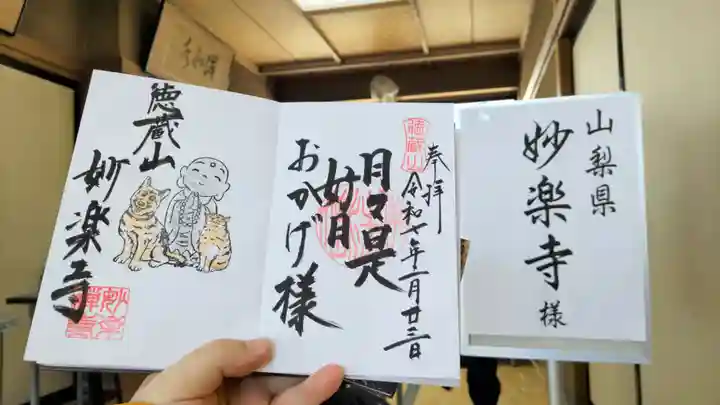 奉拝
令和七年二月廿三日
月々是
好月
おかげ様
徳蔵山
妙楽寺
山梨県
妙楽寺様